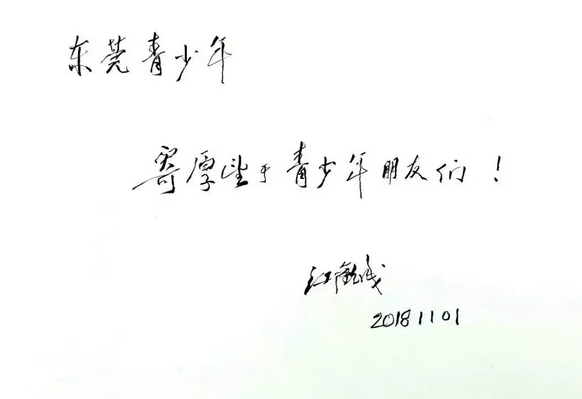 东莞青少年
寄厚望于青少年朋友们！
20181101